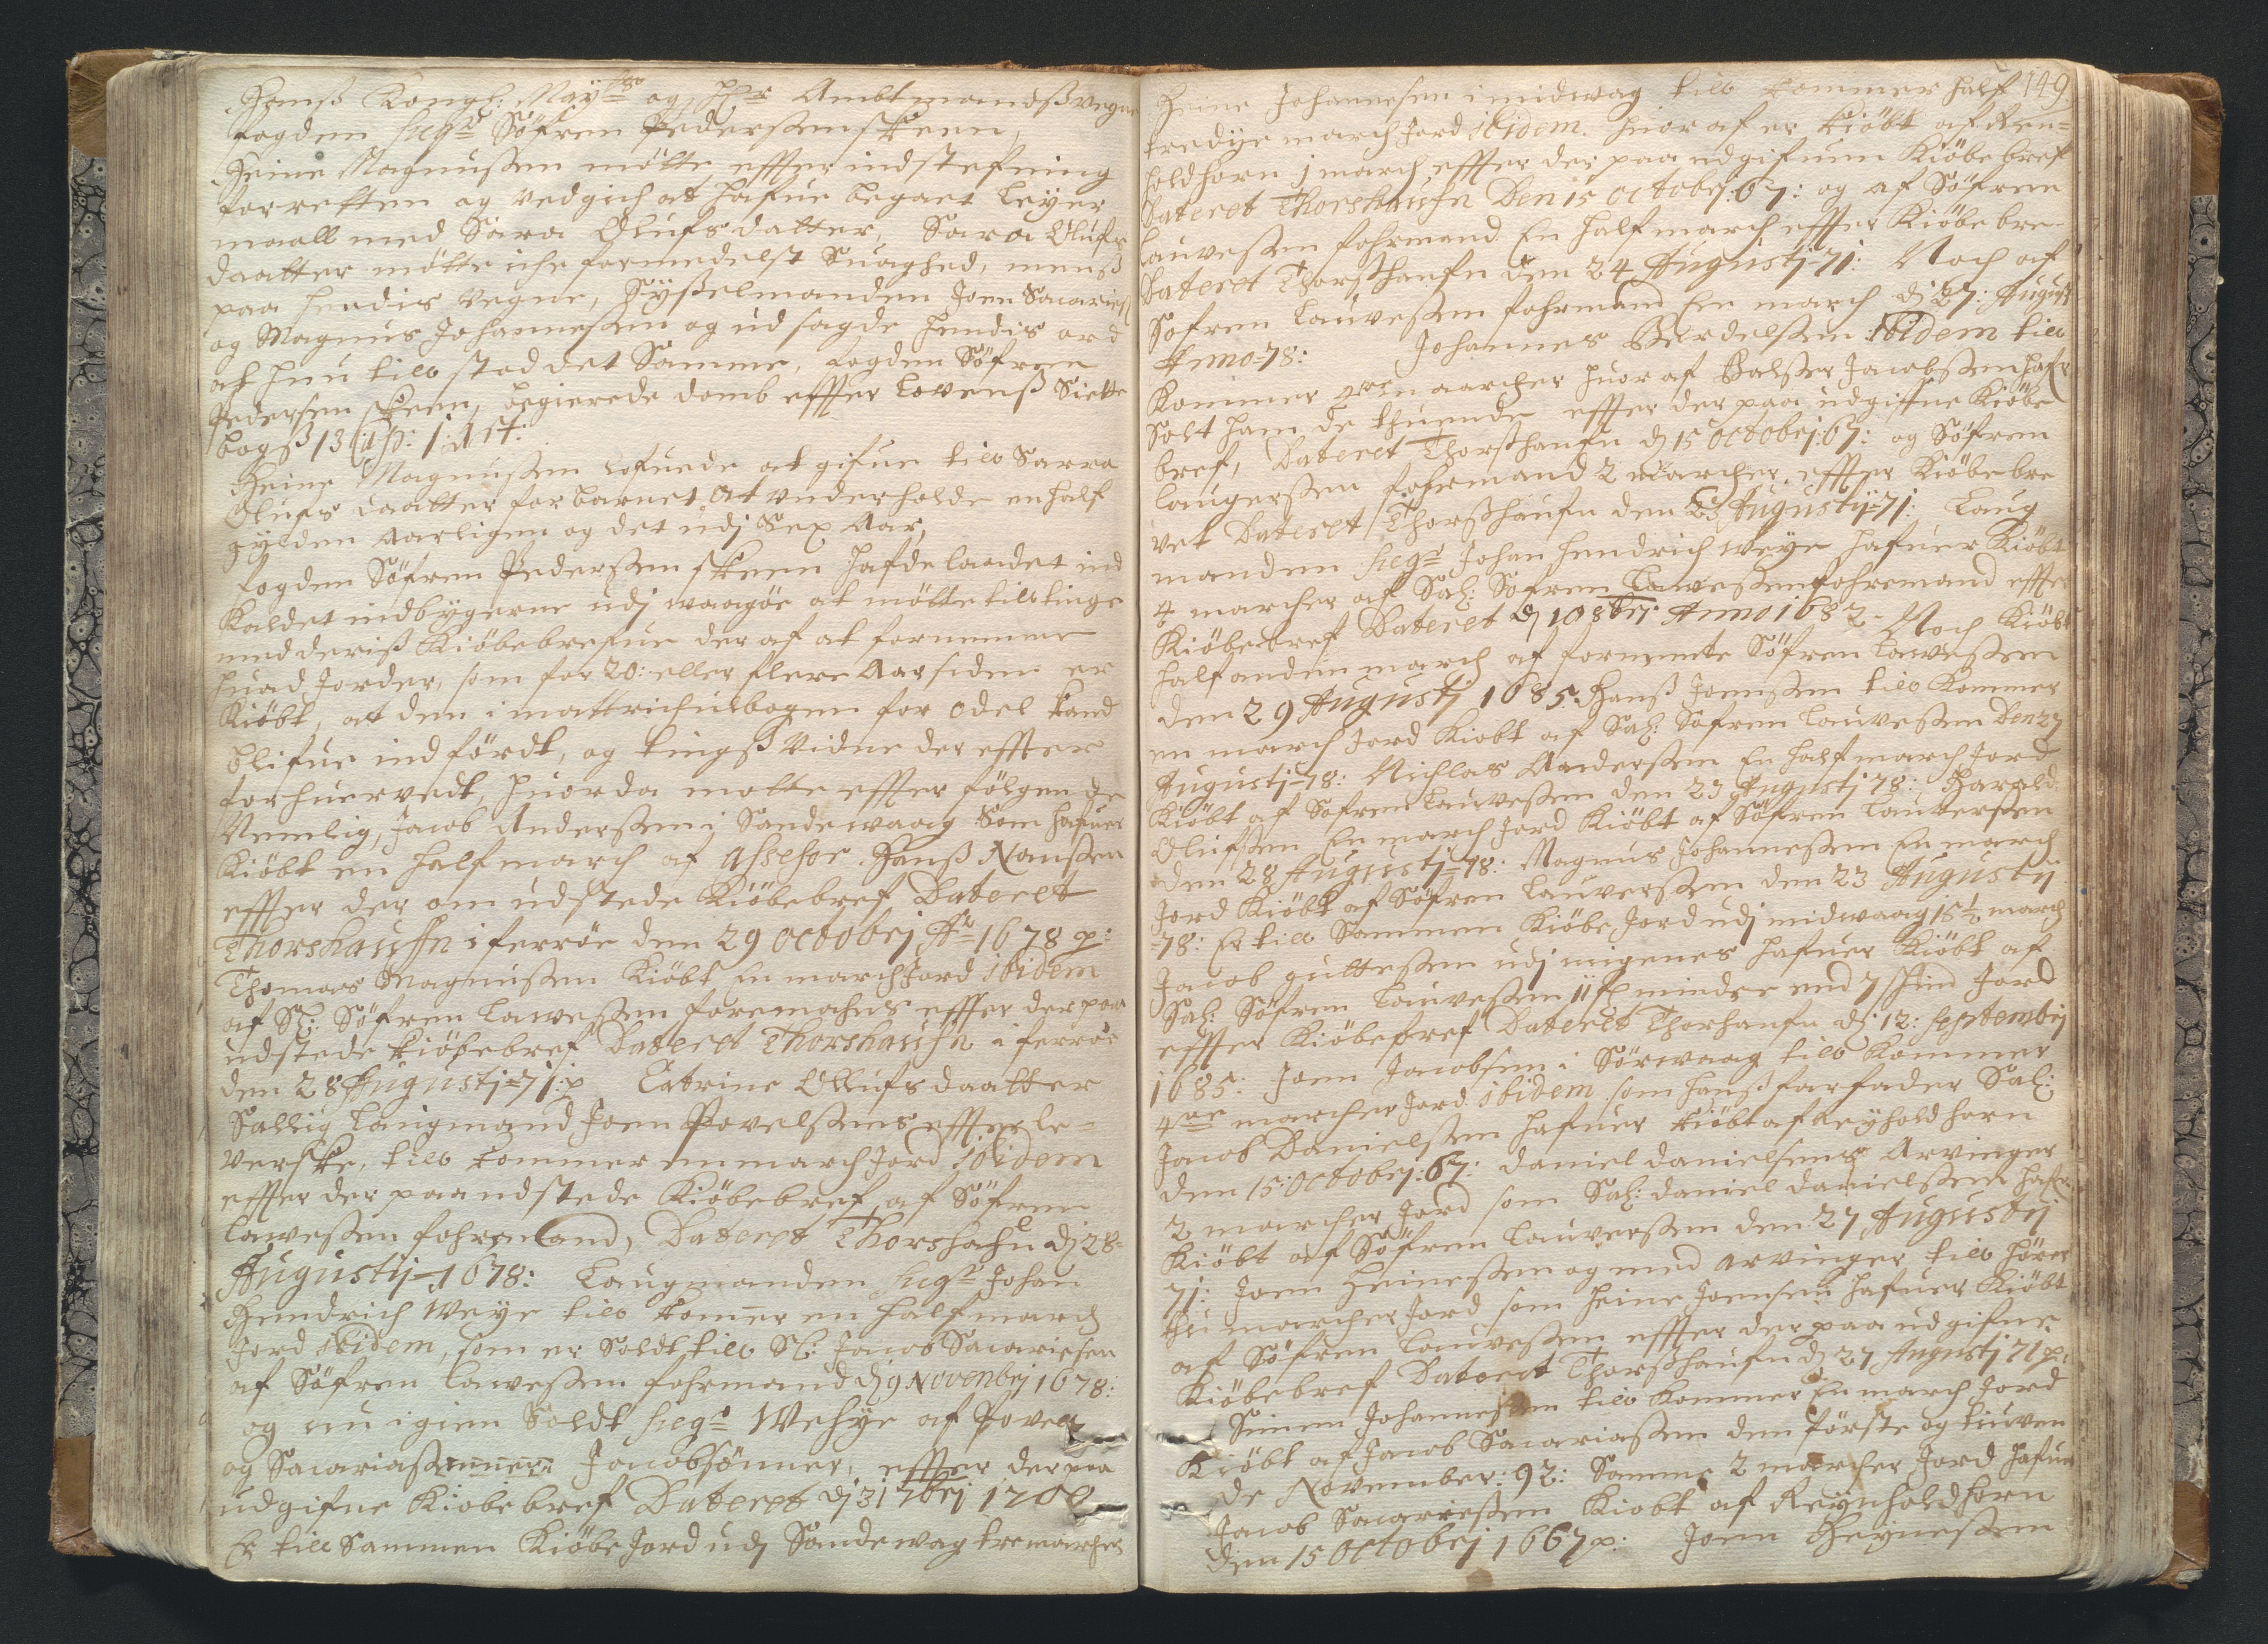 Hanß Kongl: May:ts og Hr: Ambtmandß vegne
fogden Siegr Söfren Pedersen Skeen,
Heine Magnußen mötte effter indstefning
for retten og vedgich at hafue begaet Leyer
maall med Sara Olufsdatter, Sara Olufs
daatter mötte iche formedelst Suaghed, menß
paa hendis vegne, Sysselmanden Joen Sacariesß
og Magnus Johannesen og udsagde hendis ord
at hun till stod det Samme, fogden Söfren
Pedersen Skeen, begierede domb effter lowenß Siette
bogß 13 Cap: 1 art:
Heine Magnußen lofuede at gifue till Sarra
Olufs daatter for barnet at underholde en half
gylden aarligen og det udj Sex Aar,
fogden Söfren Pedersen Skeen hafde ladet ind
kaldet indbygerne udj waagöe at mötte till tinge
med deriß Kiöbebrefue der af at fornemme
huad Jorder, som for 20: eller flere Aar siden er
Kiöbt, at den i mattrichulbogen for odel kand
blifue indfördt, og tingß vidne der effter
forhueruedt, huor da motte effter fölgende
Nemlig, Jacob Andersen i Sandewaag Som hafuer
Kiöbt en half march af Assesor Hanß Nansen
effter der om udstede Kiöbebref Dateret
Thorshauffn i ferröe den 29 octobrj Ao 1678 p:
Thomas Magnußen Kiöbt En march Jord ibidem
af Sl: Söfren Laweßen foremahns effter der paa
udstede kiöbebref Dateret Thorshauffn i ferröe
den 28 Augustj 71: p Catrine Ollufsdaatter
Sallig Laugmand Joen Povelsens effterle-
verske, till kommer en march Jord ibidem
effter der paa udstede Kiöbebref af Söfren
Laweßen fohrmand, Dateret Thorshafn dj 28
Augustij 1678: Laugmanden Siegr Johan
Hendrich Weye till komer en half march
Jord ibidem, som er Soldt till Sl: Jacob Sacariesen
af Söfren Laweßen fohrmand dj 9 Novenbrj 1678:
og nu igien Soldt Siegr Wehye af Povel
og Sacariaßenner Jacobsönner, effter der paa
udgifne Kiobebref Dateret dj 31 7brj 1700
Er till Sammen Kiöbe Jord udj Sandewag tre marcher
149
Heine Johannesen i midwag till kommer half
tredye march Jord ibidem. huor af er kiöbt af Ren=
hold horn j march effter der paa udgifuen Kiöbebref
Dateret Thorshauffn Den 15 octobrj: 67: og af Söfren
Lauweßen fohrmand En half march effter Kiöbe bre-
Dateret Thorßhaufn den 24 Augustj 71: Noch af
Sofren Lauweßen fohrmand En march dj 27: August
Anno 78: Johannes Berdelsen ibidem till
Kommer 4re marcher huor af Balser Jacobsen hafr
Solt ham de thuende effter der paa udgifne Kiöbe
bref, Dateret Thorßhaufn dj 15 octobrj: 67: og Söfren
Laugersen fohrmand 2 marcher effter Kiöbe bre
vet Dateret Thorßhaufn den 23 Augustij 71: Laug
manden Siegr Johan hendrich Weye hafuer Kiöbt
4 marcher af Sal: Sofren Laweßen fohrmand effter
Kiöbebref Dateret dj 10 8brj Anno 1682 Noch Kiöbt
half anden march af formente Söfren Laweßen
den 29 Augustj 1685: Hanß Joenßen till kommer
en march Jord Kiobt af Sal: Sofren Lauweßen Den 27
Augustj 78: Nichlas Andersen En half march Jord
Kiöbt af Sofren Lauweßen den 23 Augustj 78: Harald
Olufßen En march Jord Kiöbt af Söfren Lauversen
den 28 Augustj 78: Magnus Johanneßen En march
Jord Kiöbt af Söfren Lauversen den 23 Augustij
78: Er till Sammen Kiöbe Jord udj midwaag 15½ march
Jacob gutteßen udj migenes hafuer Kiöbt af
Sal: Söfren Lauweßen 11 f minder end 7 skind Jord
effter Kiöbebref Dateret Thorhaufn dj 12: septembrj
1685: Joen Jacobsen i Sörwaag till kommer
4re marcher Jord ibidem som hanß farfader Sal:
Jacob Danielsen hafuer kiöbt af Reyhold horn
den 15: octobrj: 67: Daniel Danielsens Arvinger
2 marcher Jord som Sal: Daniel Danielsen hafr
Kiöbt af Söfren Lauversen den 27 Augustij
71: Joen Heineßen og med arvinger till hörer
thu marcher Jord som heine Joensen hafuer Kiöbt
af Söfren Lauweßen effter der paa udgifne
Kiöbebref Dateret Thorßhaufn dj 27 Augustj 71 p:
Simen Johannesen till kommer En march Jord
Kiöbt af Jacob Sacariaßen den förste og tiuven
de November: 92: Samme 2 marcher Jord hafuer
Jacob Sacarießen Kiobt af Reynhold horn
den 15 octobrj 1667 p: Joen Heyneßen